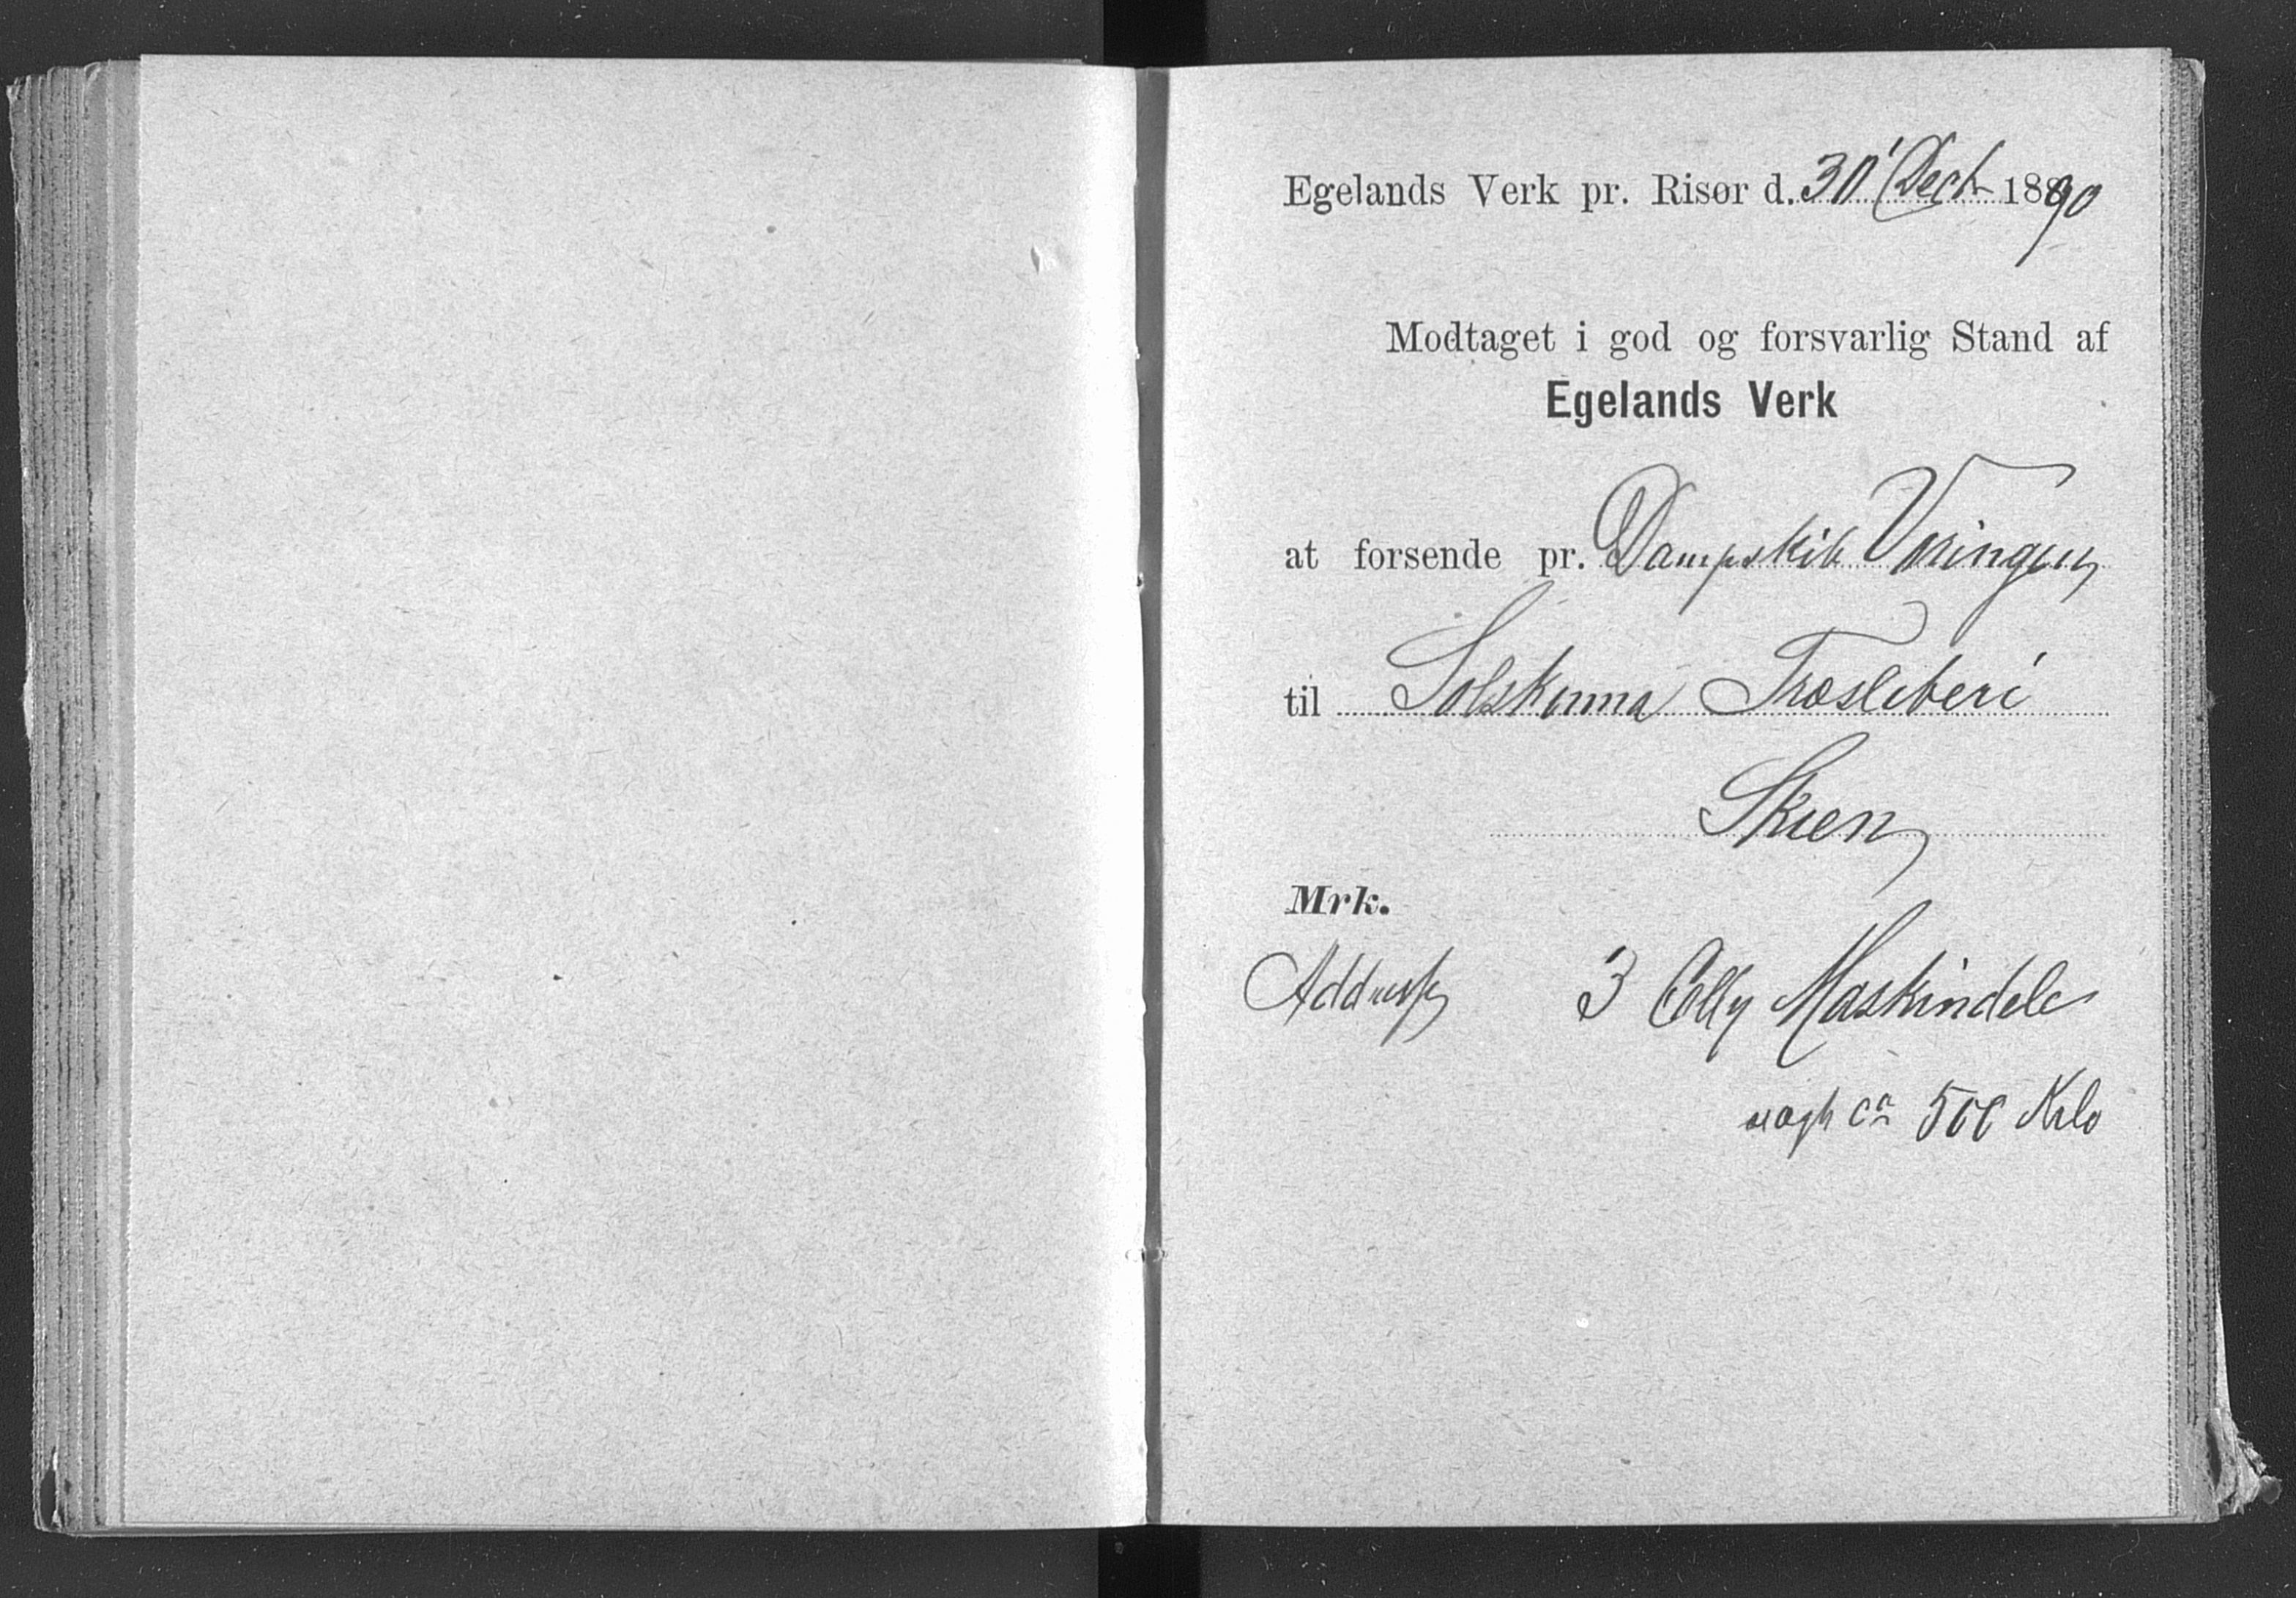 Egelands Verk pr. Risør d. 30' Decb 1890
Modtaget i god og forsvarlig Stand af
Egelands Verk
at forsende pr. Dampskib Vøringen
til Solskinna Træsliberi
Skien
Mrk.
Addresse 3 Colly Maskindele
vægt ca 500 Kilo